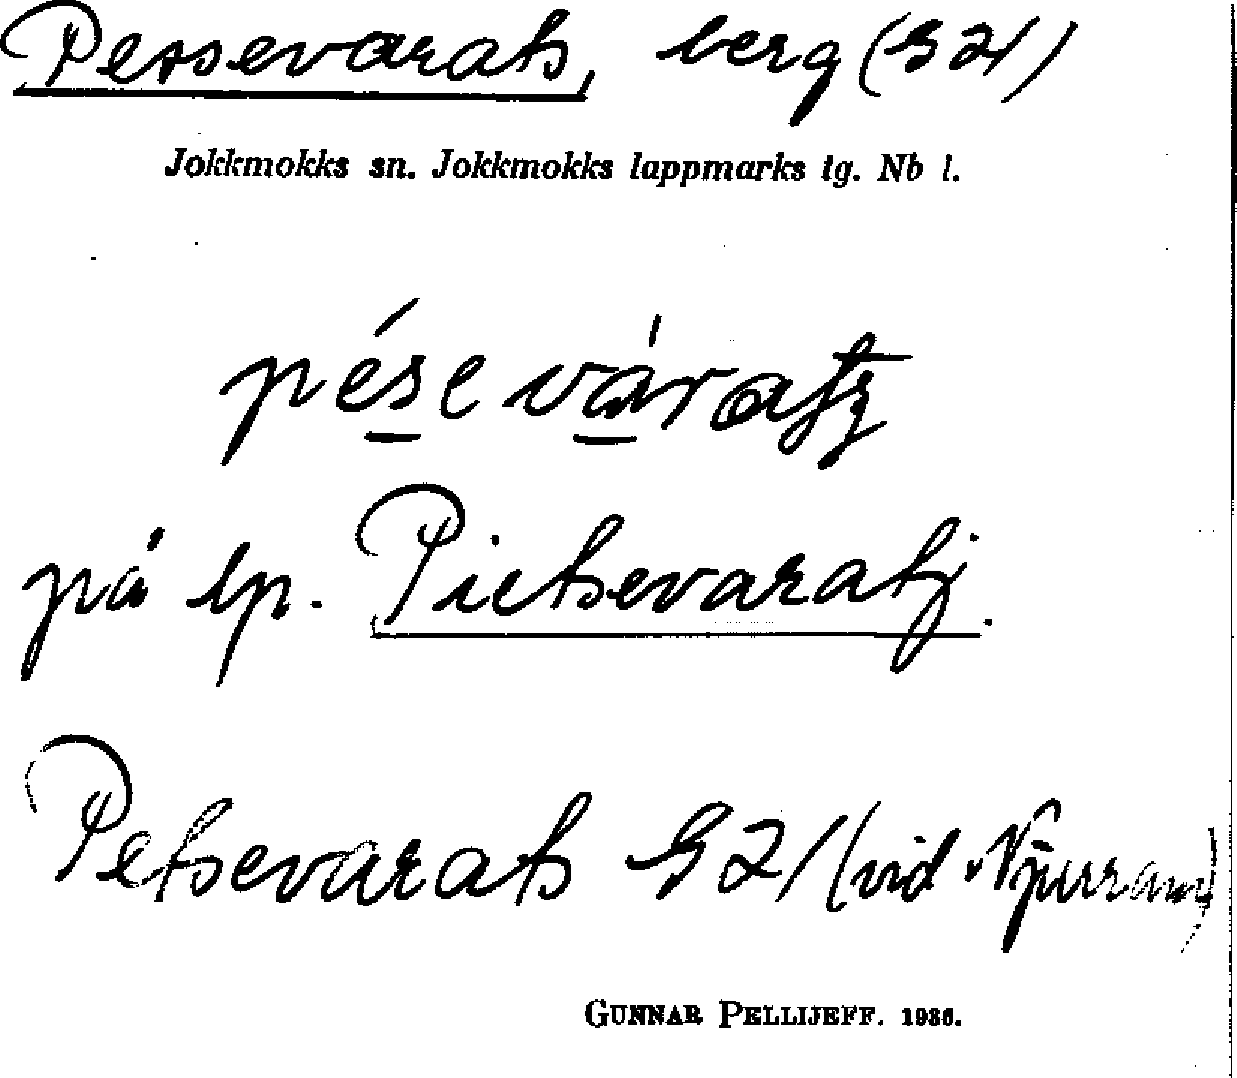 Pessevarats, berg (G21)
Jokkmokks sn. Jokkmokks lappmarks tg. Nb l.
pésevárat̶ʒ
på lp. Pietsevaratj.
Petsevarats G21 (vid Njurram)
GUNNAR PELLIJEFF. 1936.